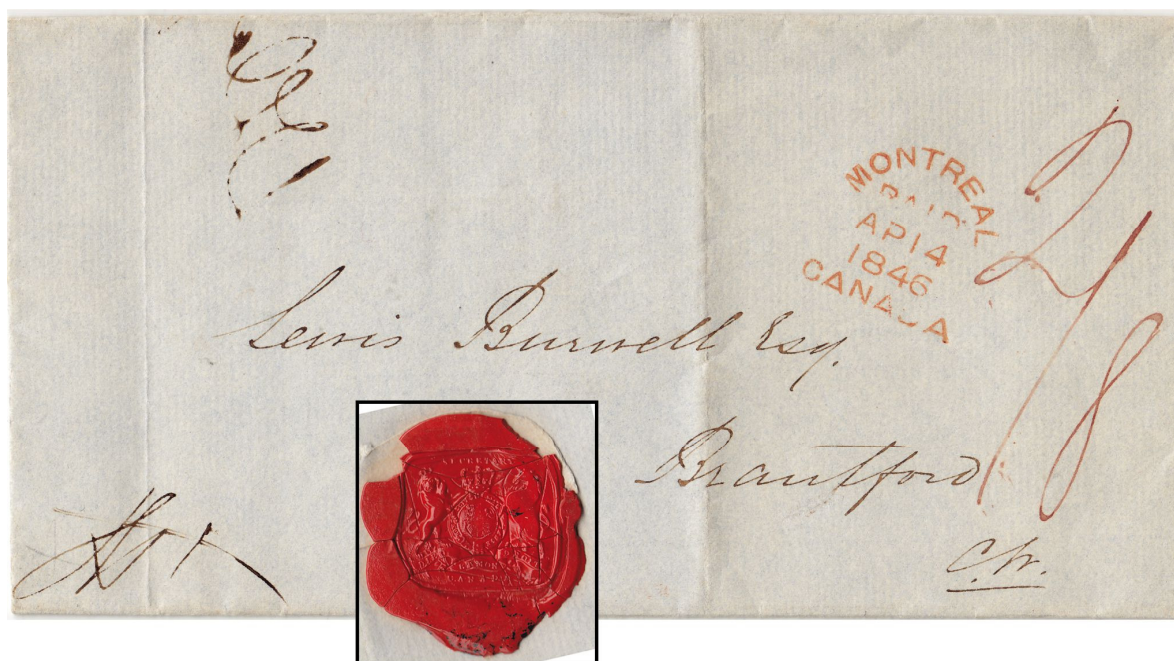 MONTREAL
AP 14
1846
CANADA
2/8
Lewis Burwell Esq.
Brantford
C.W.
SECRETARY
CANADA